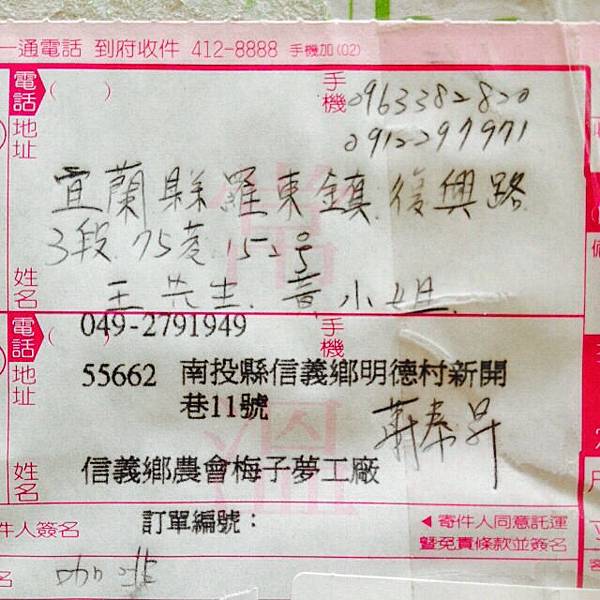 一通電話 到府收件 412-8888 手機加(02)
電話 ( ) 手機 0963382820
0912297971
地址
宜蘭縣羅東鎮復興路
3段75巷152号
姓名 王先生. 章小姐.
常溫
電話 ( ) 049-2791949 手機
地址 55662 南投縣信義鄉明德村新開
巷11號
姓名 信義鄉農會梅子夢工廠
件人簽名 訂單編號：
◀寄件人同意託運
暨免責條款並簽名
名